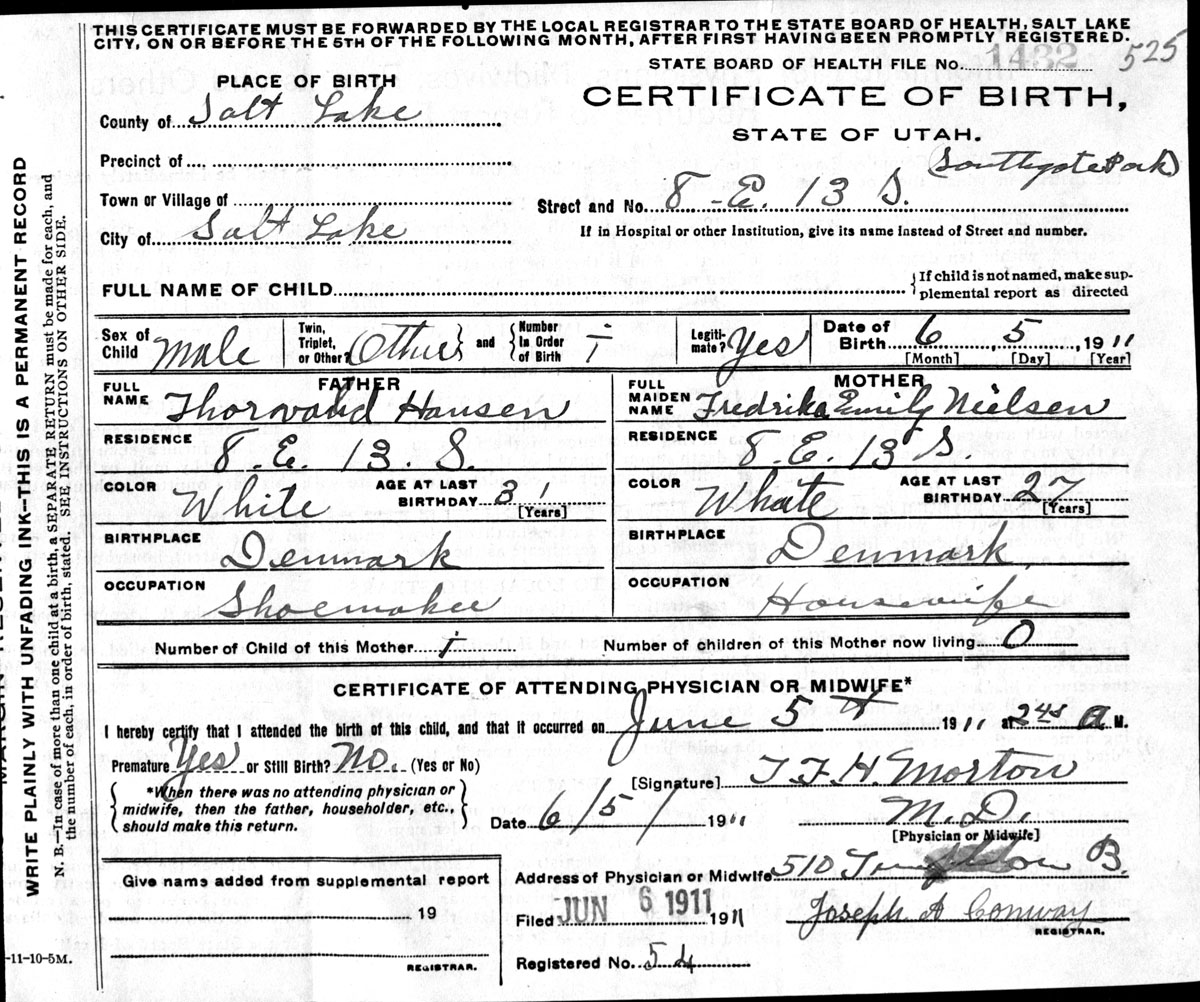 THIS CERTIFICATE MUST BE FORWARDED BY THE LOCAL REGISTRAR TO THE STATE BOARD OF HEALTH, SALT LAKE
CITY, ON OR BEFORE THE 5TH OF THE FOLLOWING MONTH, AFTER FIRST HAVING BEEN PROMPTLY REGISTERED.
STATE BOARD OF HEALTH FILE NO. 1432 525
PLACE OF BIRTH
CERTIFICATE OF BIRTH,
STATE OF UTAH.
County of Salt Lake
Precinct of
(Southgate Park)
Town or Village of
Street and No. 8 - E. 13 S.
City of Salt Lake
If in Hospital or other Institution, give its name instead of Street and number.
FULL NAME OF CHILD
If child is not named, make sup-
plemental report as directed
Sex of Child Male
Twin, Triplet, or Other? Other and Number In Order of Birth 1
Legiti- mate? Yes
Date of Birth 6 5 1911
[Month] [Day] [Year]
FATHER
FULL NAME Thorvald Hansen
MOTHER
FULL MAIDEN NAME Fredrika Emily Nielsen
RESIDENCE 8. E. 13. S.
RESIDENCE 8. E. 13 S
COLOR White AGE AT LAST BIRTHDAY 31 [Years]
COLOR Whaite AGE AT LAST BIRTHDAY 27 [Years]
BIRTHPLACE Denmark
BIRTHPLACE Denmark
OCCUPATION Shoemaker
OCCUPATION Housewife
Number of Child of this Mother 1 Number of children of this Mother now living 0
CERTIFICATE OF ATTENDING PHYSICIAN OR MIDWIFE*
I hereby certify that I attended the birth of this child, and that it occurred on June 5th 1911 at 2 45 a M.
Premature Yes or Still Birth? No. (Yes or No)
*When there was no attending physician or
midwife, then the father, householder, etc.,
should make this return.
[Signature] T. F. H. Morton
Date 6/5/ 1911 M. D.
[Physician or Midwife]
Address of Physician or Midwife 510 Templeton B.
Give name added from supplemental report
19
REGISTRAR.
Filed JUN 6 1911 1911 Joseph A Conway
REGISTRAR.
Registered No. 54
-11-10-5M.
WRITE PLAINLY WITH UNFADING INK—THIS IS A PERMANENT RECORD
N. B.—In case of more than one child at a birth, a SEPARATE RETURN must be made for each, and
the number of each, in order of birth, stated. SEE INSTRUCTIONS ON OTHER SIDE.